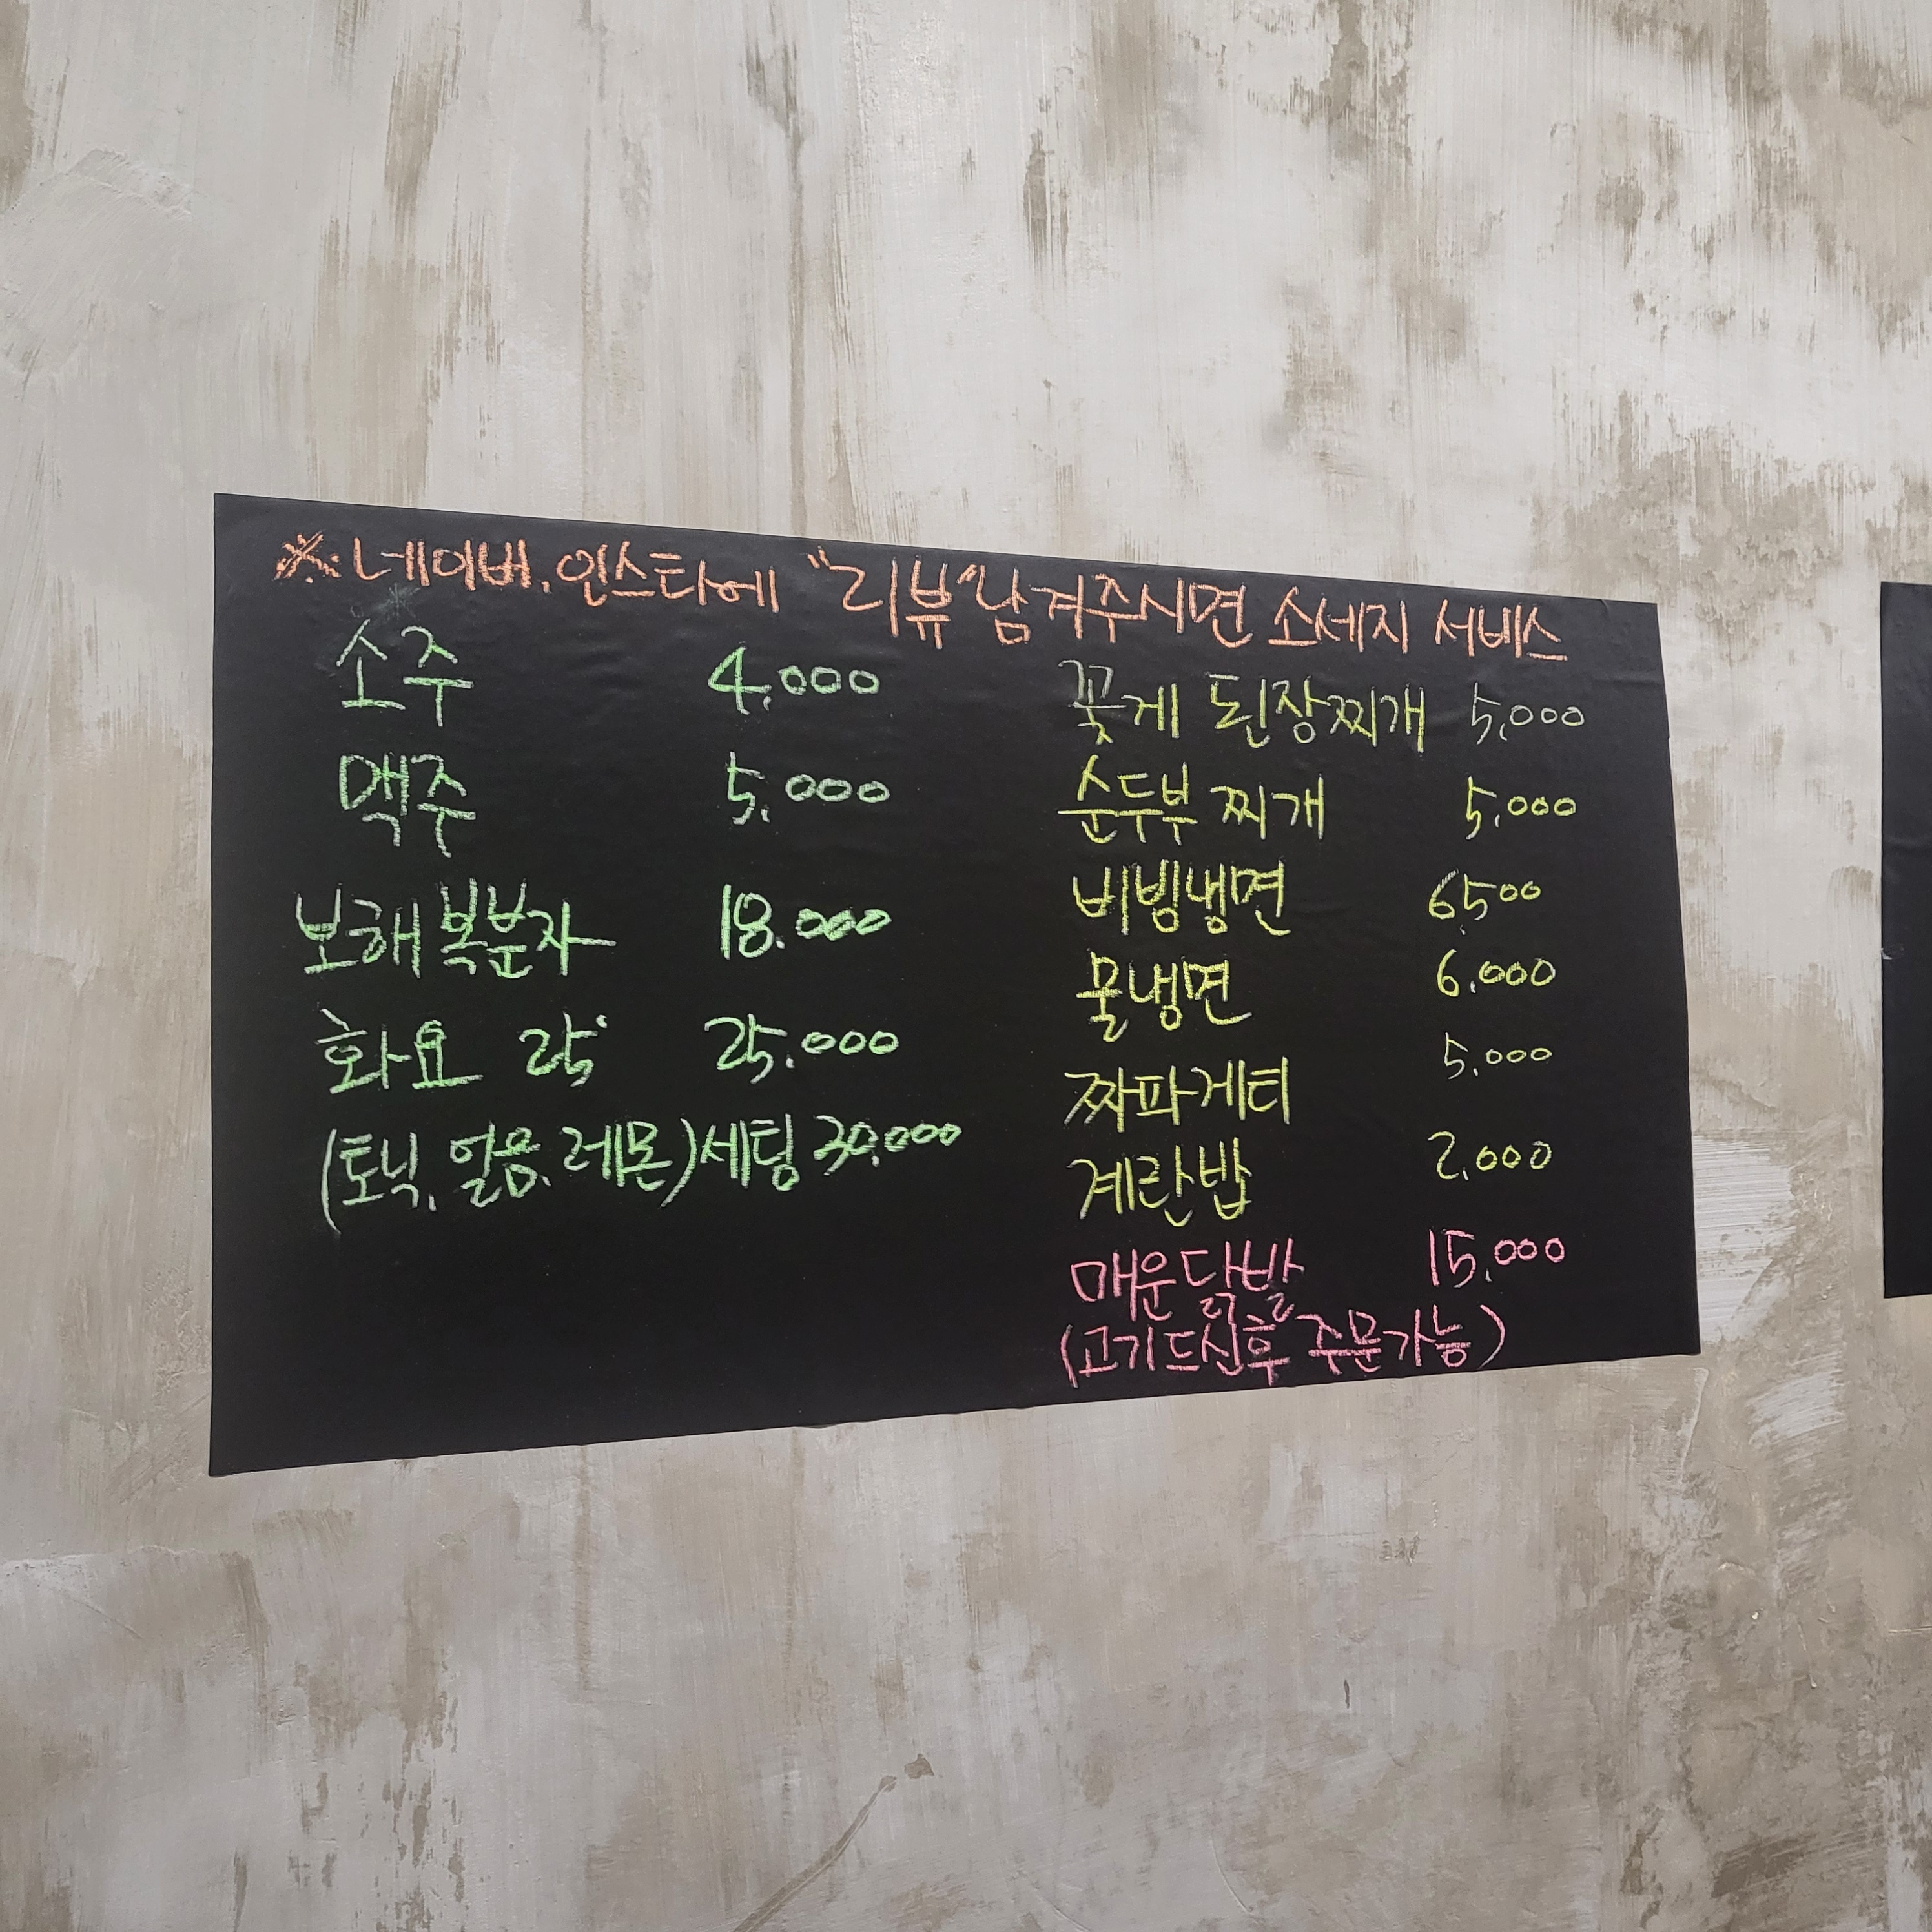 ※네이버.인스타에 "리뷰"남겨주시면 소세지 서비스
소주 4,000
맥주 5,000
보해 복분자 18.000
화요 25° 25.000
(토닉, 얼음, 레몬)세팅 30,000
꽃게 된장찌개 5,000
순두부 찌개 5,000
비빙냉면 6500
물냉면 6.000
짜파게티 5.000
계란밥 2.000
매운닭발 15.000
(고기드신후 주문가능)